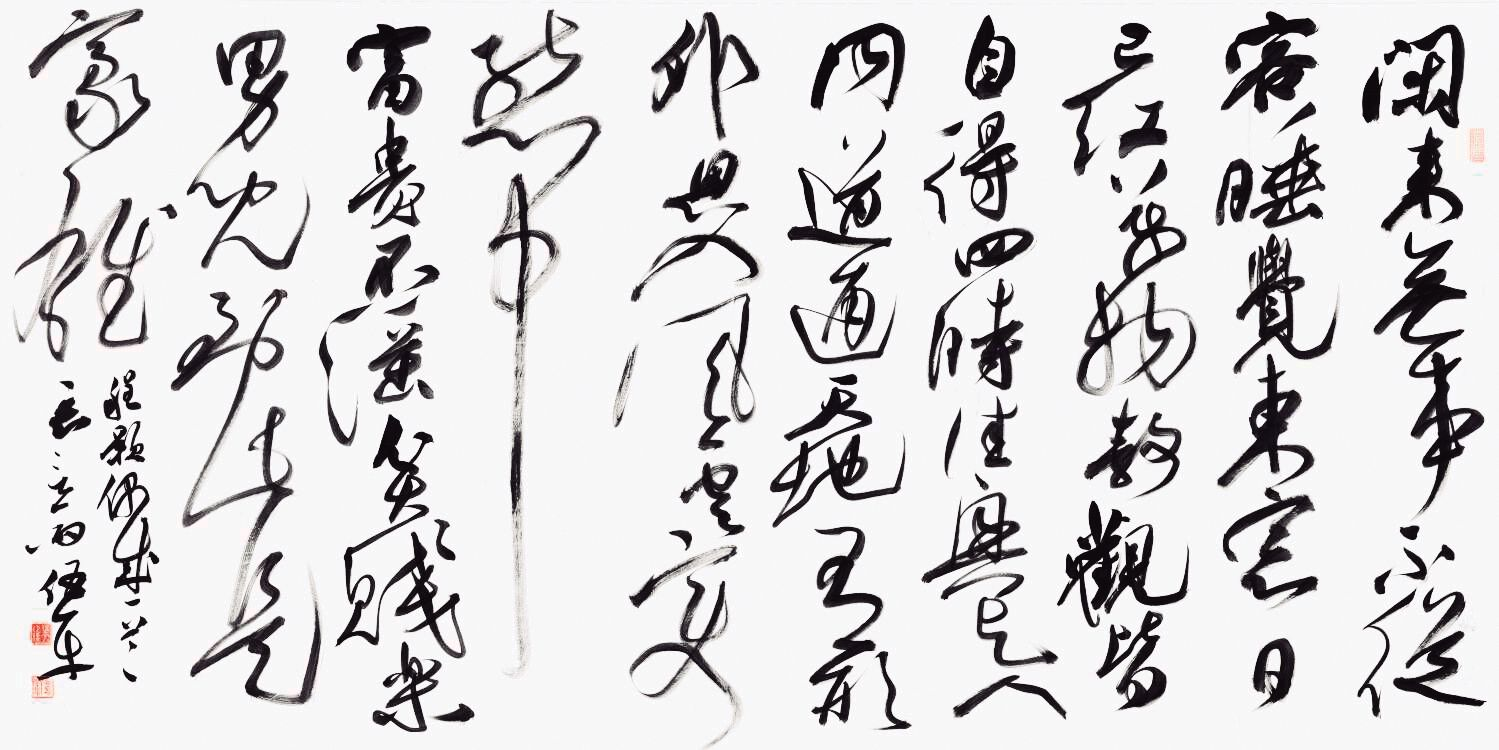 閑来無事不從
容睡覺東窓日
已紅萬物静觀皆
自得四時佳興與人
同道通天地有形
外思入風雲變
態中
富貴不淫貧賤樂
男兒到此是
豪雄
程顥偶成一首